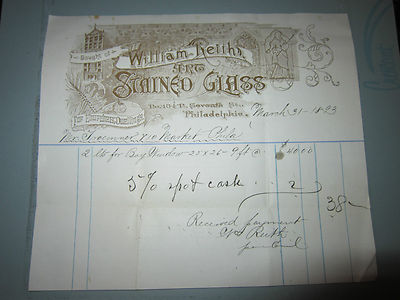 Bought of
William Reith's
ART
STAINED GLASS
No. 104 N. Seventh St.,
Philadelphia, March 31 1893
For Churches, Dwellings
Mr. 710 Market Phila
2 Lts for Bay Window 25 x 26 - 9 ft @ $ 40 00
5% spot cash .. 2
38-
Received payment
Reith